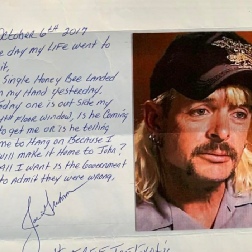 October 6th 2017
e day my LIFE went to
it,
Single Honey Bee Landed
my Hand yesterday.
day one is out side my
4th Floor window, is he coming
to get me or is he telling
me to Hang on Because I
will make it Home to John?
All I want is the Government
to Admit they were wrong.